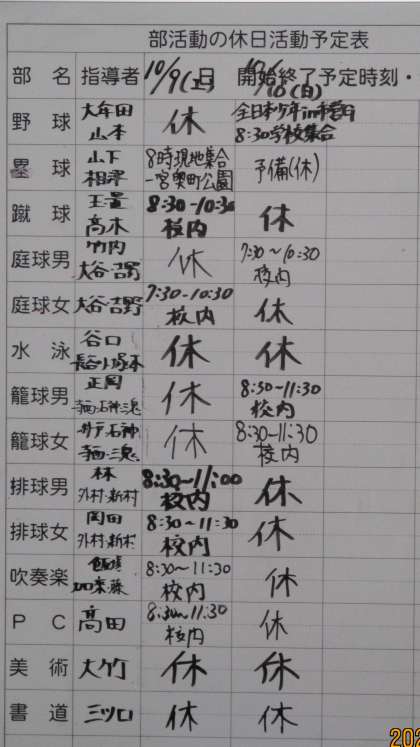 部活動の休日活動予定表
部 名 指導者 10/9(土) 開始終了予定時刻・
10/10(日)
野 球 大牟田 休 8:30学校集合
山本
塁 球 山下 8時現地集合 予備(休)
相津 一宮奥町公園
蹴 球 8:30-10:30 休
高木 校内
庭球男 竹内 休 7:30~10:30
大谷・吉野 校内
庭球女 大谷・吉野 7:30-10:30 休
校内
水 泳 谷口 休 休
籠球男 正岡 休 8:30-11:30
校内
籠球女 休 8:30-11:30
校内
排球男 林 8:30~11:00 休
外村・新村 校内
排球女 岡田 8:30~11:30 休
外村・新村 校内
吹奏楽 8:30~11:30 休
加藤 校内
P C 髙田 8:30~11:30 休
校内
美 術 大竹 休 休
書 道 三ツ口 休 休
202